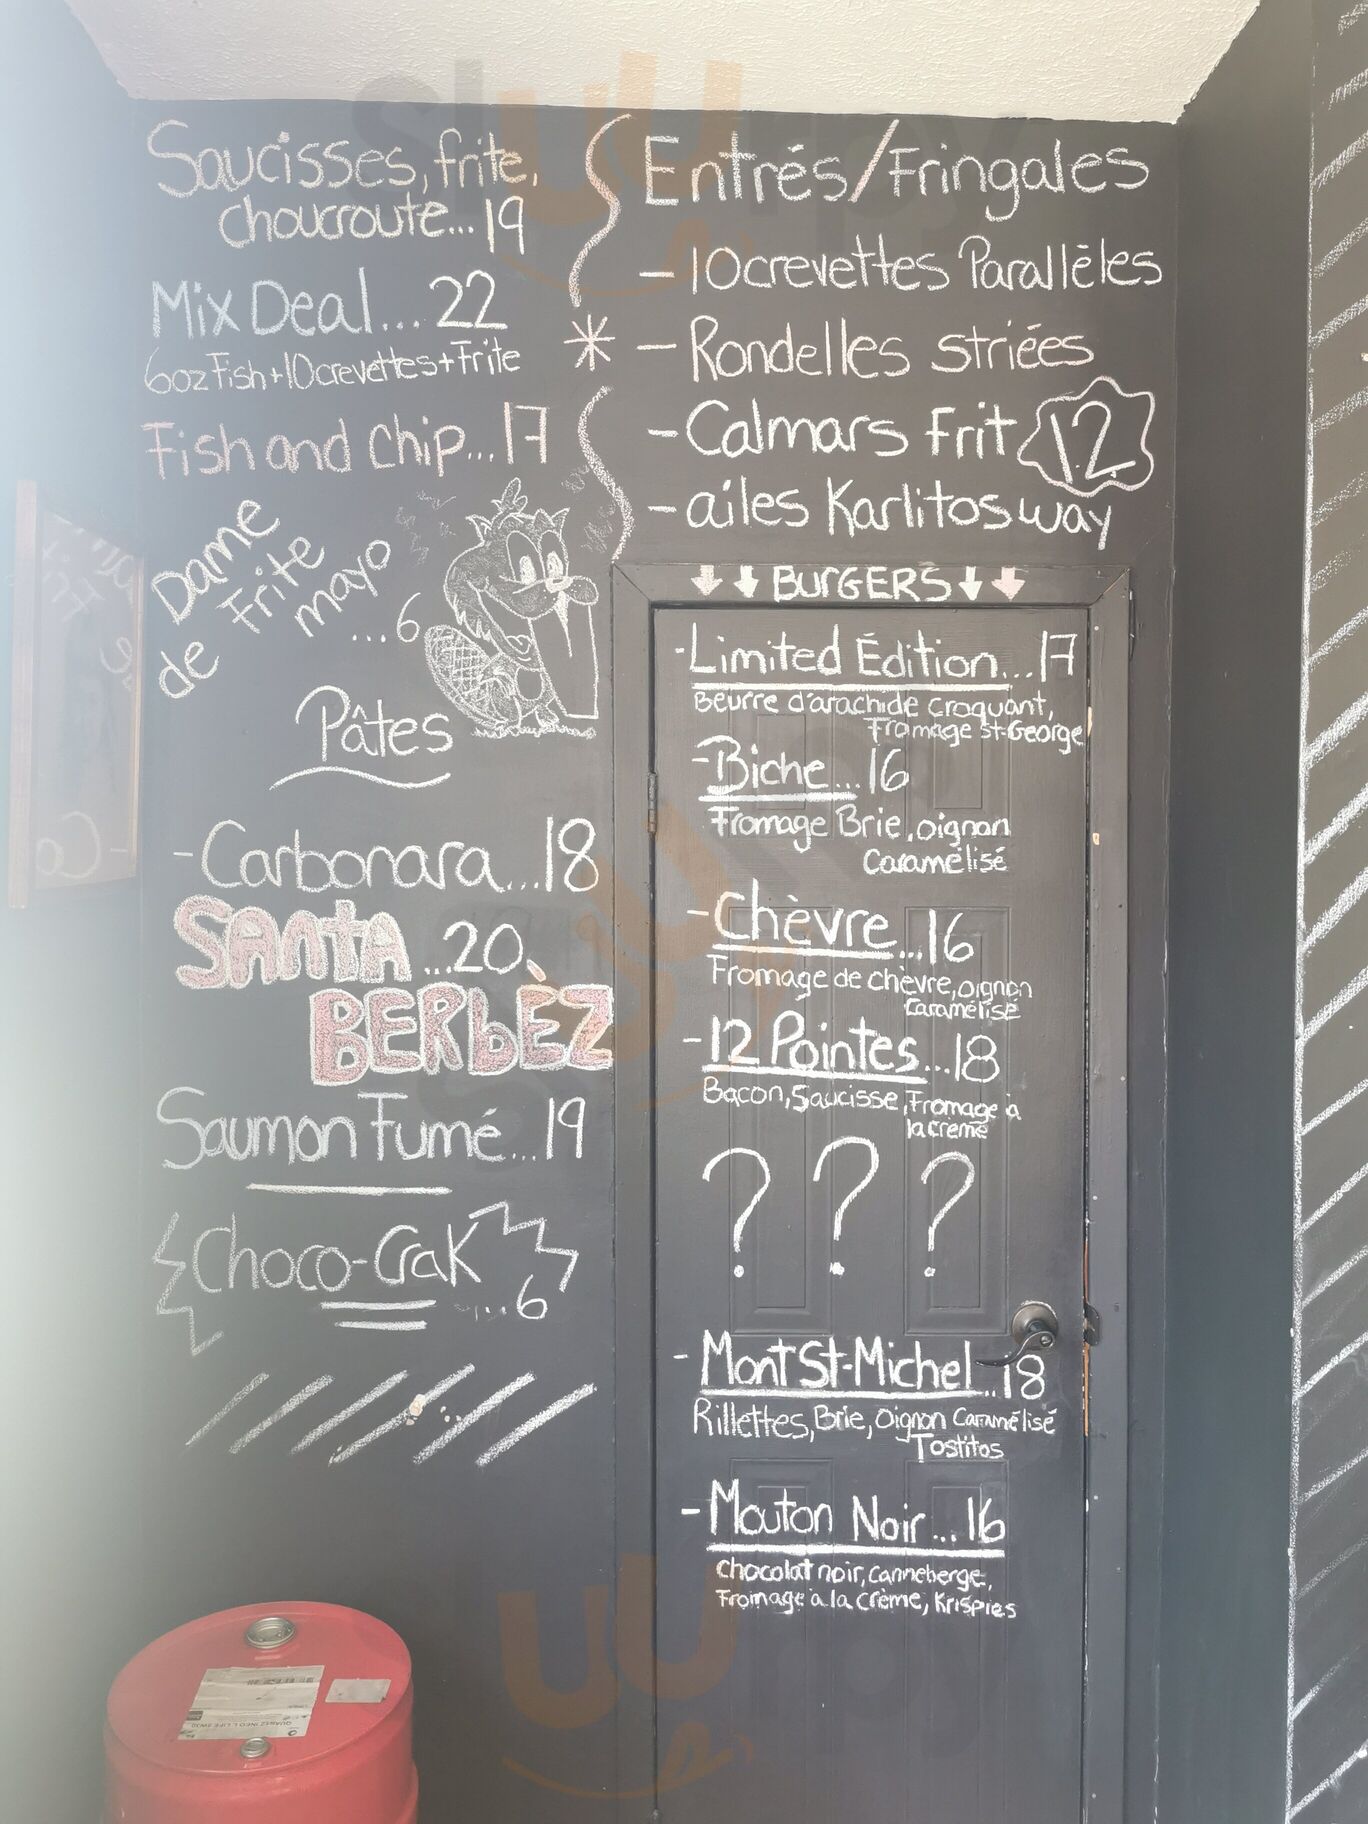 Saucisses, frite,
choucroute... 19
Mix Deal... 22
6oz Fish+10crevettes+Frite
Fish and Chip... 17
Dame
de Frite
mayo
...6
Pâtes
-Carbonara...18
SANTA ...20
BERBÈZ
Saumon Fumé...19
Choco-Crak
...6
Entrés/Fringales
-10crevettes Parallèles
* -Rondelles striées
-Calmars Frit 12
-ailes Karlitosway
BURGERS
-Limited Édition...17
Beurre d'arachide croquant,
Fromage St-George
-Biche...16
Fromage Brie, oignon
Caramélisé
-Chèvre...16
Fromage de chèvre, oignon
Caramélisé
-12 Pointes...18
Bacon, Saucisse, Fromage à
la creme
? ? ?
-Mont St-Michel...18
Rillettes, Brie, oignon Caramélisé
Tostitos
-Mouton Noir...16
chocolat noir, canneberge,
Fromage à la crème, Krispies
slurpy
slurpy
QUARTZ INEO L LIFE 5W30